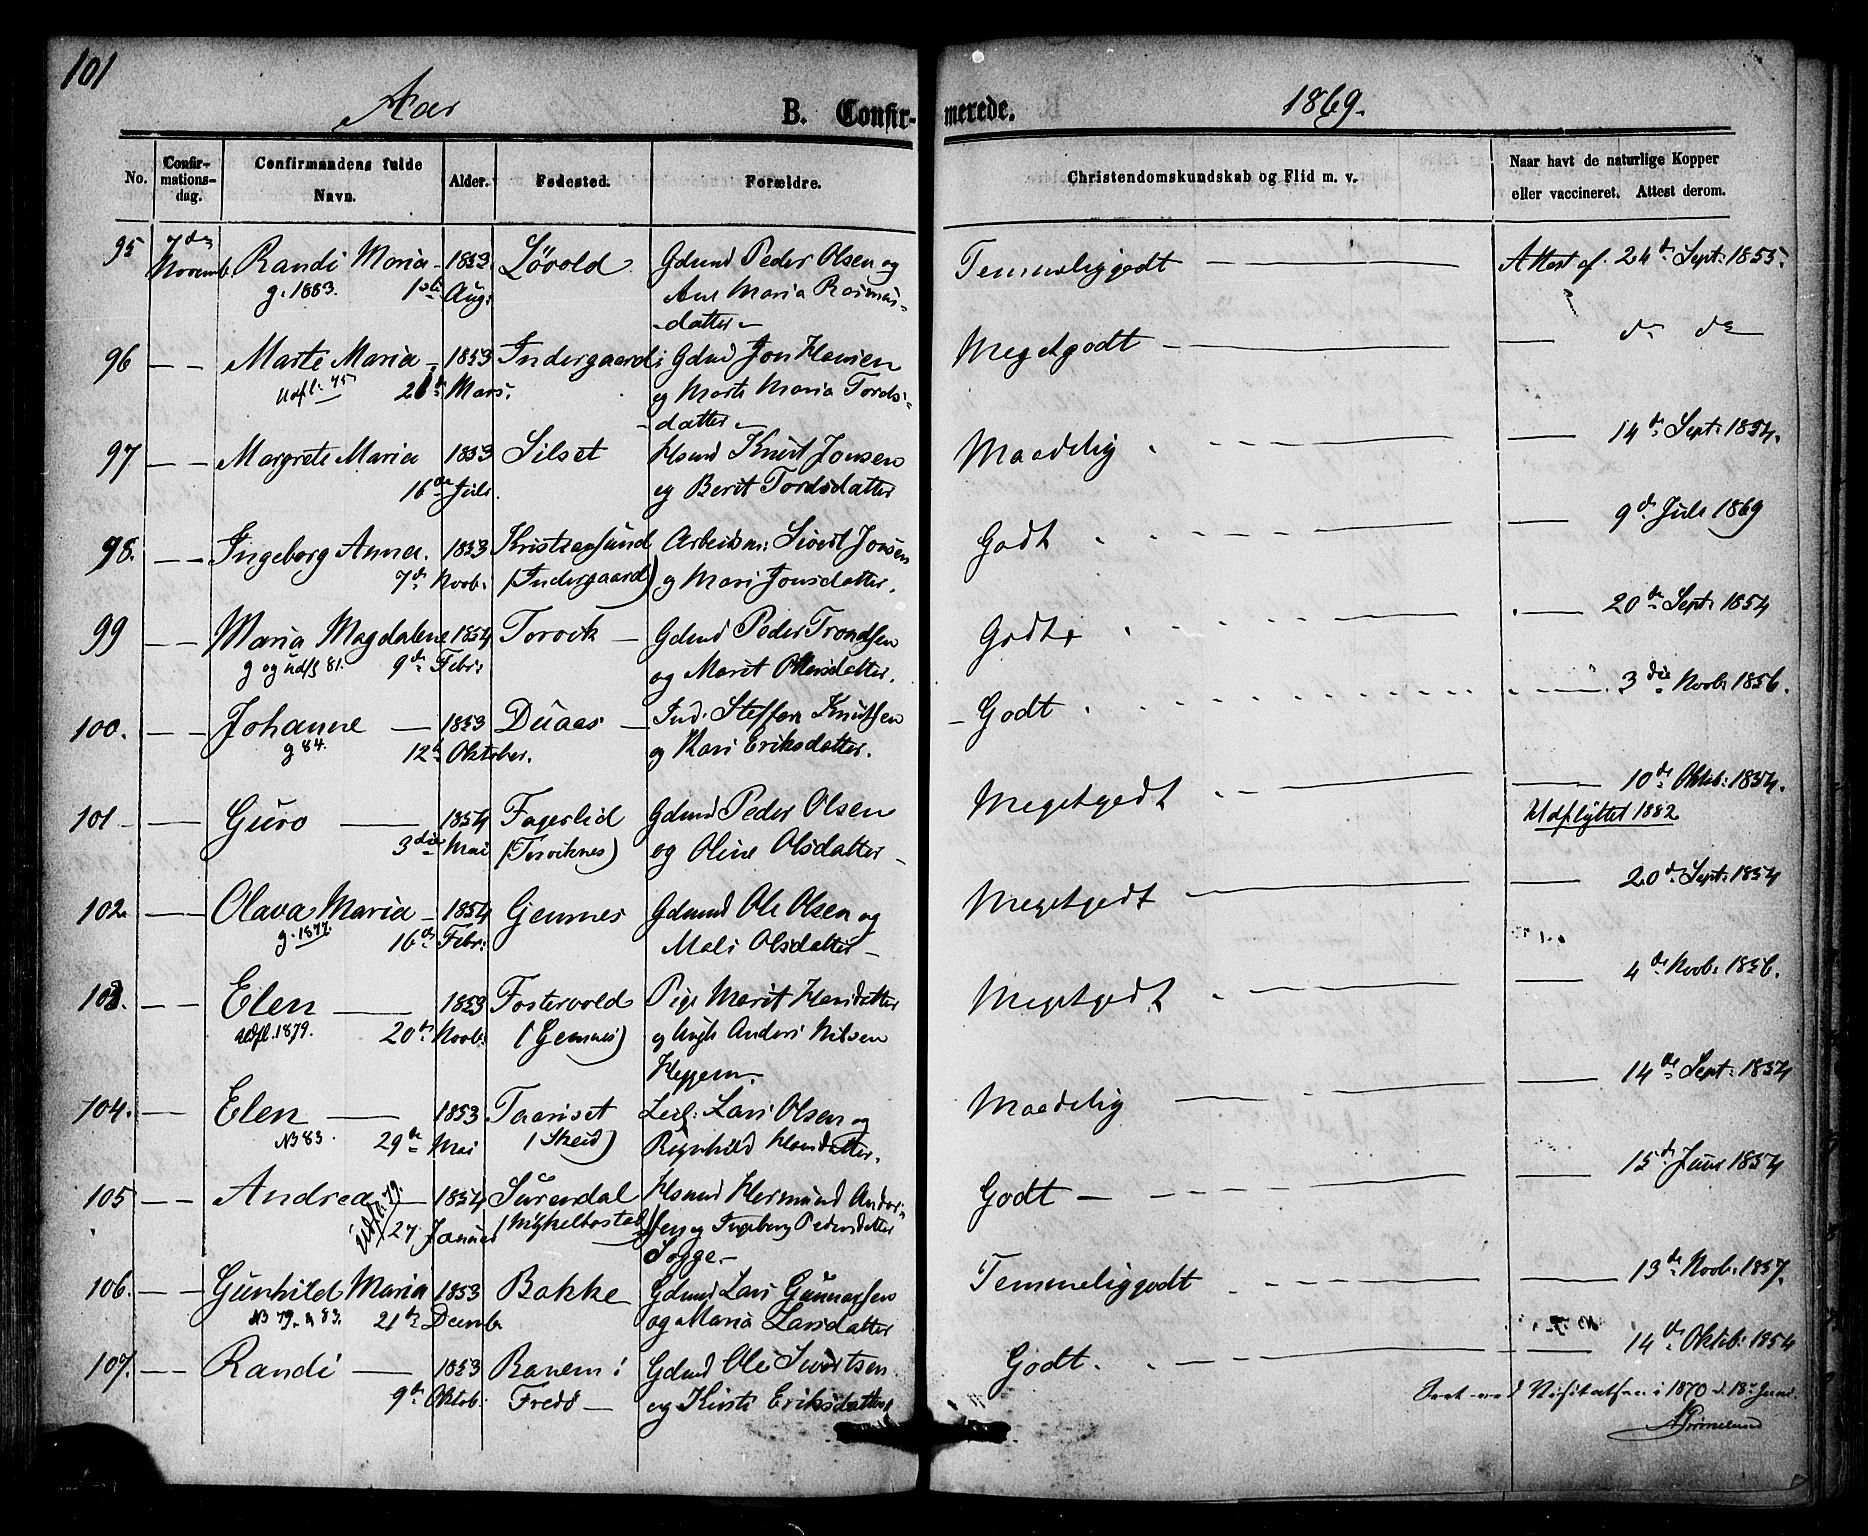 101
Aar
B. Confirmerede.
1869.
No. Confirmationsdag. Confirmandens fulde Navn. Alder. Fødested. Forældre. Christendomskundskab og Flid m. v. Naar havt de naturlige Kopper eller vaccineret. Attest derom.
95 7de Novemb. Randi Maria 1853 Lövold Gdmnd Peder Olsen og Temmeliggodt Attest af 24de Sept: 1855.
g. 1883. 1ste Aug: Ane Maria Rasmus-
datter
96 Marte Maria 1853 Indergaard Gdmd Jon Hansen Megetgodt do do
Udfl. 75 Mars. og Marte Maria Tords-
datter
97 Margrete Maria 1853 Silset Hsmd Knut Jonsen Maadelig 14de Sept: 1854.
16de Juli og Berit Tordsdatter
98. Ingeborg Anna. 1853 Kristiansund Arbeidsm: Sivert Jonsen Godt 9de Juli 1869
7de Novb. (Indergaard) og Mari Jonsdatter.
99 Maria Magdalene 1854 Torvik Gdmd Peder Trondsen Godt 20de Sept: 1854
g og udfl 81. 9de Febr: og Marit Ottersdatter.
100. Johanne 1853 Duaas Ind. Steffen Knutsen Godt 3die Novb 1856.
g 84. 12te Oktober. og Kari Eriksdatter.
101 Guro 1854 Fagerlid Gdmd Peder Olsen Megetgodt 10de Oktb: 1854.
3die Mai (Torviknes) og Oline Olsdatter Udflyttet 1882
102. Olava Maria 1854 Gjemnes Gdmnd Ole Olsen og Megetgodt 20de Sept: 1854
g. 1877. 16de Febr: Mali Olsdatter
103. Elen 1853 Fostervold Pige Marit Hansdatter Megetgodt 4de Novb. 1856.
Udfl. 1879. 20de Novb. (Gjemnes) og Ungk Anders Nilsen
Heggem
104. Elen 1853 Taariset Leil: Lars Olsen og Maadelig 14de Sept: 1854
NB 83. 29de Mai (Skeid) Ragnhild Hansdatter.
105 Andrea 1854 Surendal Hsmd Hermund Anders- Godt 15de Juni 1854
Udfl. 79. 27 Januar (Mykkelbostad) sen og Ingeborg Pedersdatter
Sogge
106. Gunhild Maria 1853 Bakke Gdmd Lars Gunnarsen Temmeliggodt 13de Novb: 1857.
NB 79. 83. 21de Decemb. og Maria Larsdatter
107. Randi 1853 Banem i Gdmd Ole Sivertsen Godt. 14de Oktb: 1854
9de Oktob. Fredø og Kirsti Eriksdatter
Seet ved Visitatsen i 1870 d. 18de Juni.